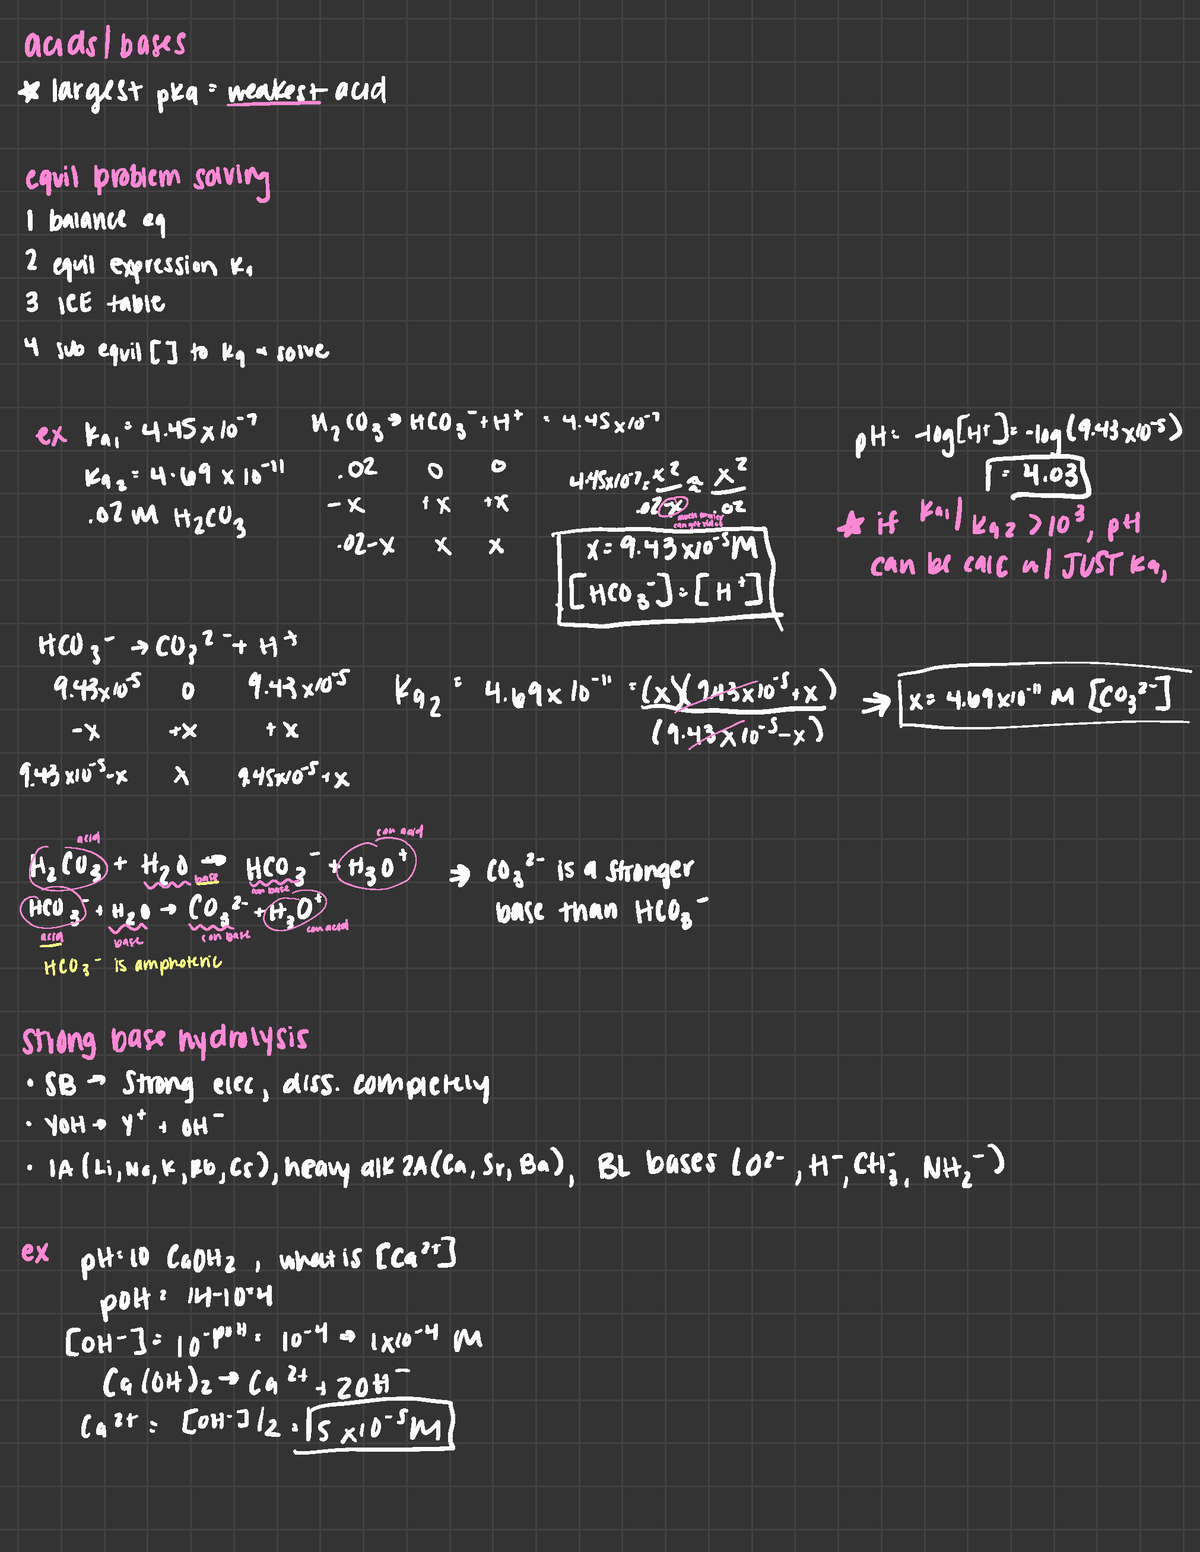 acids/bases
* largest pka = weakest acid
equil problem solving
1 balance eq
2 equil expression Ka
3 ICE table
4 sub equil [] to Ka → solve
ex Ka₁ = 4.45 x 10⁻⁷
Ka₂ = 4.69 x 10⁻¹¹
.02 M H₂CO₃
H₂CO₃ → HCO₃⁻ + H⁺ = 4.45x10⁻⁷
.02 0 0
-x +x +x
.02-x x x
4.45x10⁻⁷ = x²/.02-x ≈ x²/.02
much smaller
can get rid of
x = 9.43 x10⁻⁵ M
[HCO₃⁻] = [H⁺]
pH = -log[H⁺] = -log(9.43x10⁻⁵)
= 4.03
* if Ka₁/Ka₂ > 10³, pH
can be calc w/ JUST Ka₁
HCO₃⁻ → CO₃²⁻ + H⁺
9.43x10⁻⁵ 0 9.43x10⁻⁵
-x +x +x
9.43x10⁻⁵-x x 9.45x10⁻⁵+x
Ka₂ = 4.69x10⁻¹¹ = (x)(9.43x10⁻⁵+x)/(9.43x10⁻⁵-x) ⇒ x = 4.69x10⁻¹¹ M [CO₃²⁻]
acid con acid
H₂CO₃ + H₂O → HCO₃⁻ + H₃O⁺
base con base
HCO₃⁻ + H₂O → CO₃²⁻ + H₃O⁺
acid base con base con acid
HCO₃⁻ is amphoteric
⇒ CO₃²⁻ is a stronger
base than HCO₃⁻
strong base hydrolysis
• SB → strong elec, diss. completely
• YOH → Y⁺ + OH⁻
• 1A (Li, Na, K, Rb, Cs), heavy alk 2A (Ca, Sr, Ba), BL bases (O²⁻, H⁻, CH₃⁻, NH₂⁻)
ex pH = 10 CaOH₂, what is [Ca²⁺]
pOH = 14-10=4
[OH-] = 10⁻ᵖᵒᴴ = 10⁻⁴ → 1x10⁻⁴ M
Ca(OH)₂ → Ca²⁺ + 2OH⁻
Ca²⁺ = [OH-]/2 = 5 x10⁻⁵ M